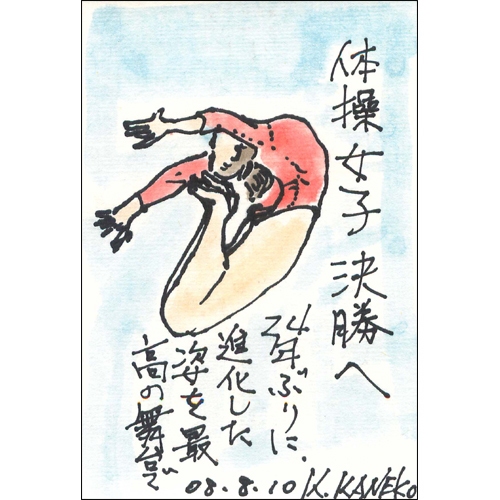 体操女子 決勝へ
24年ぶりに、
進化した
姿を最
高の舞台で
08.8.10 K.KANEKO